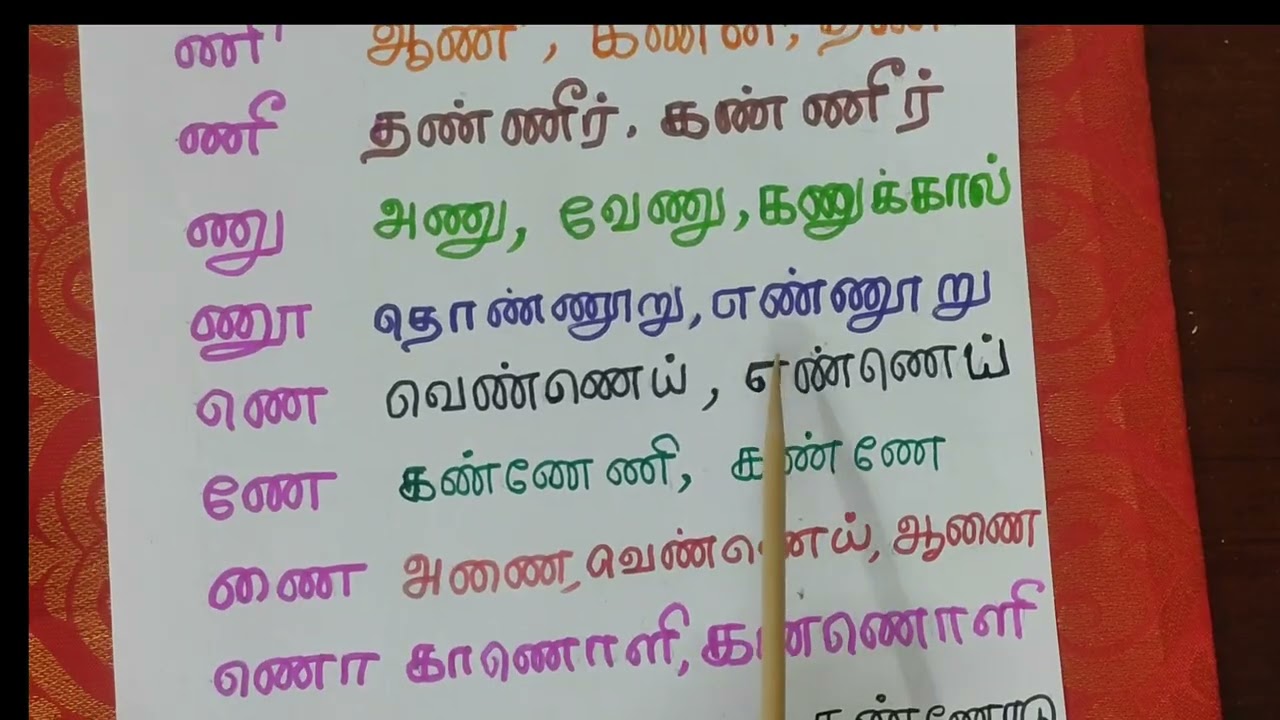 ணி ஆணி, கண்ணி,
ணீ தண்ணீர். கண்ணீர்
ணு அணு, வேணு, கணுக்கால்
ணூ தொண்ணூறு, எண்ணூறு
ணெ வெண்ணெய், எண்ணெய்
ணே கண்ணேணி, கண்ணே
ணை அணை, வெண்ணெய், ஆணை
ணொ காணொளி, கண்ணொளி